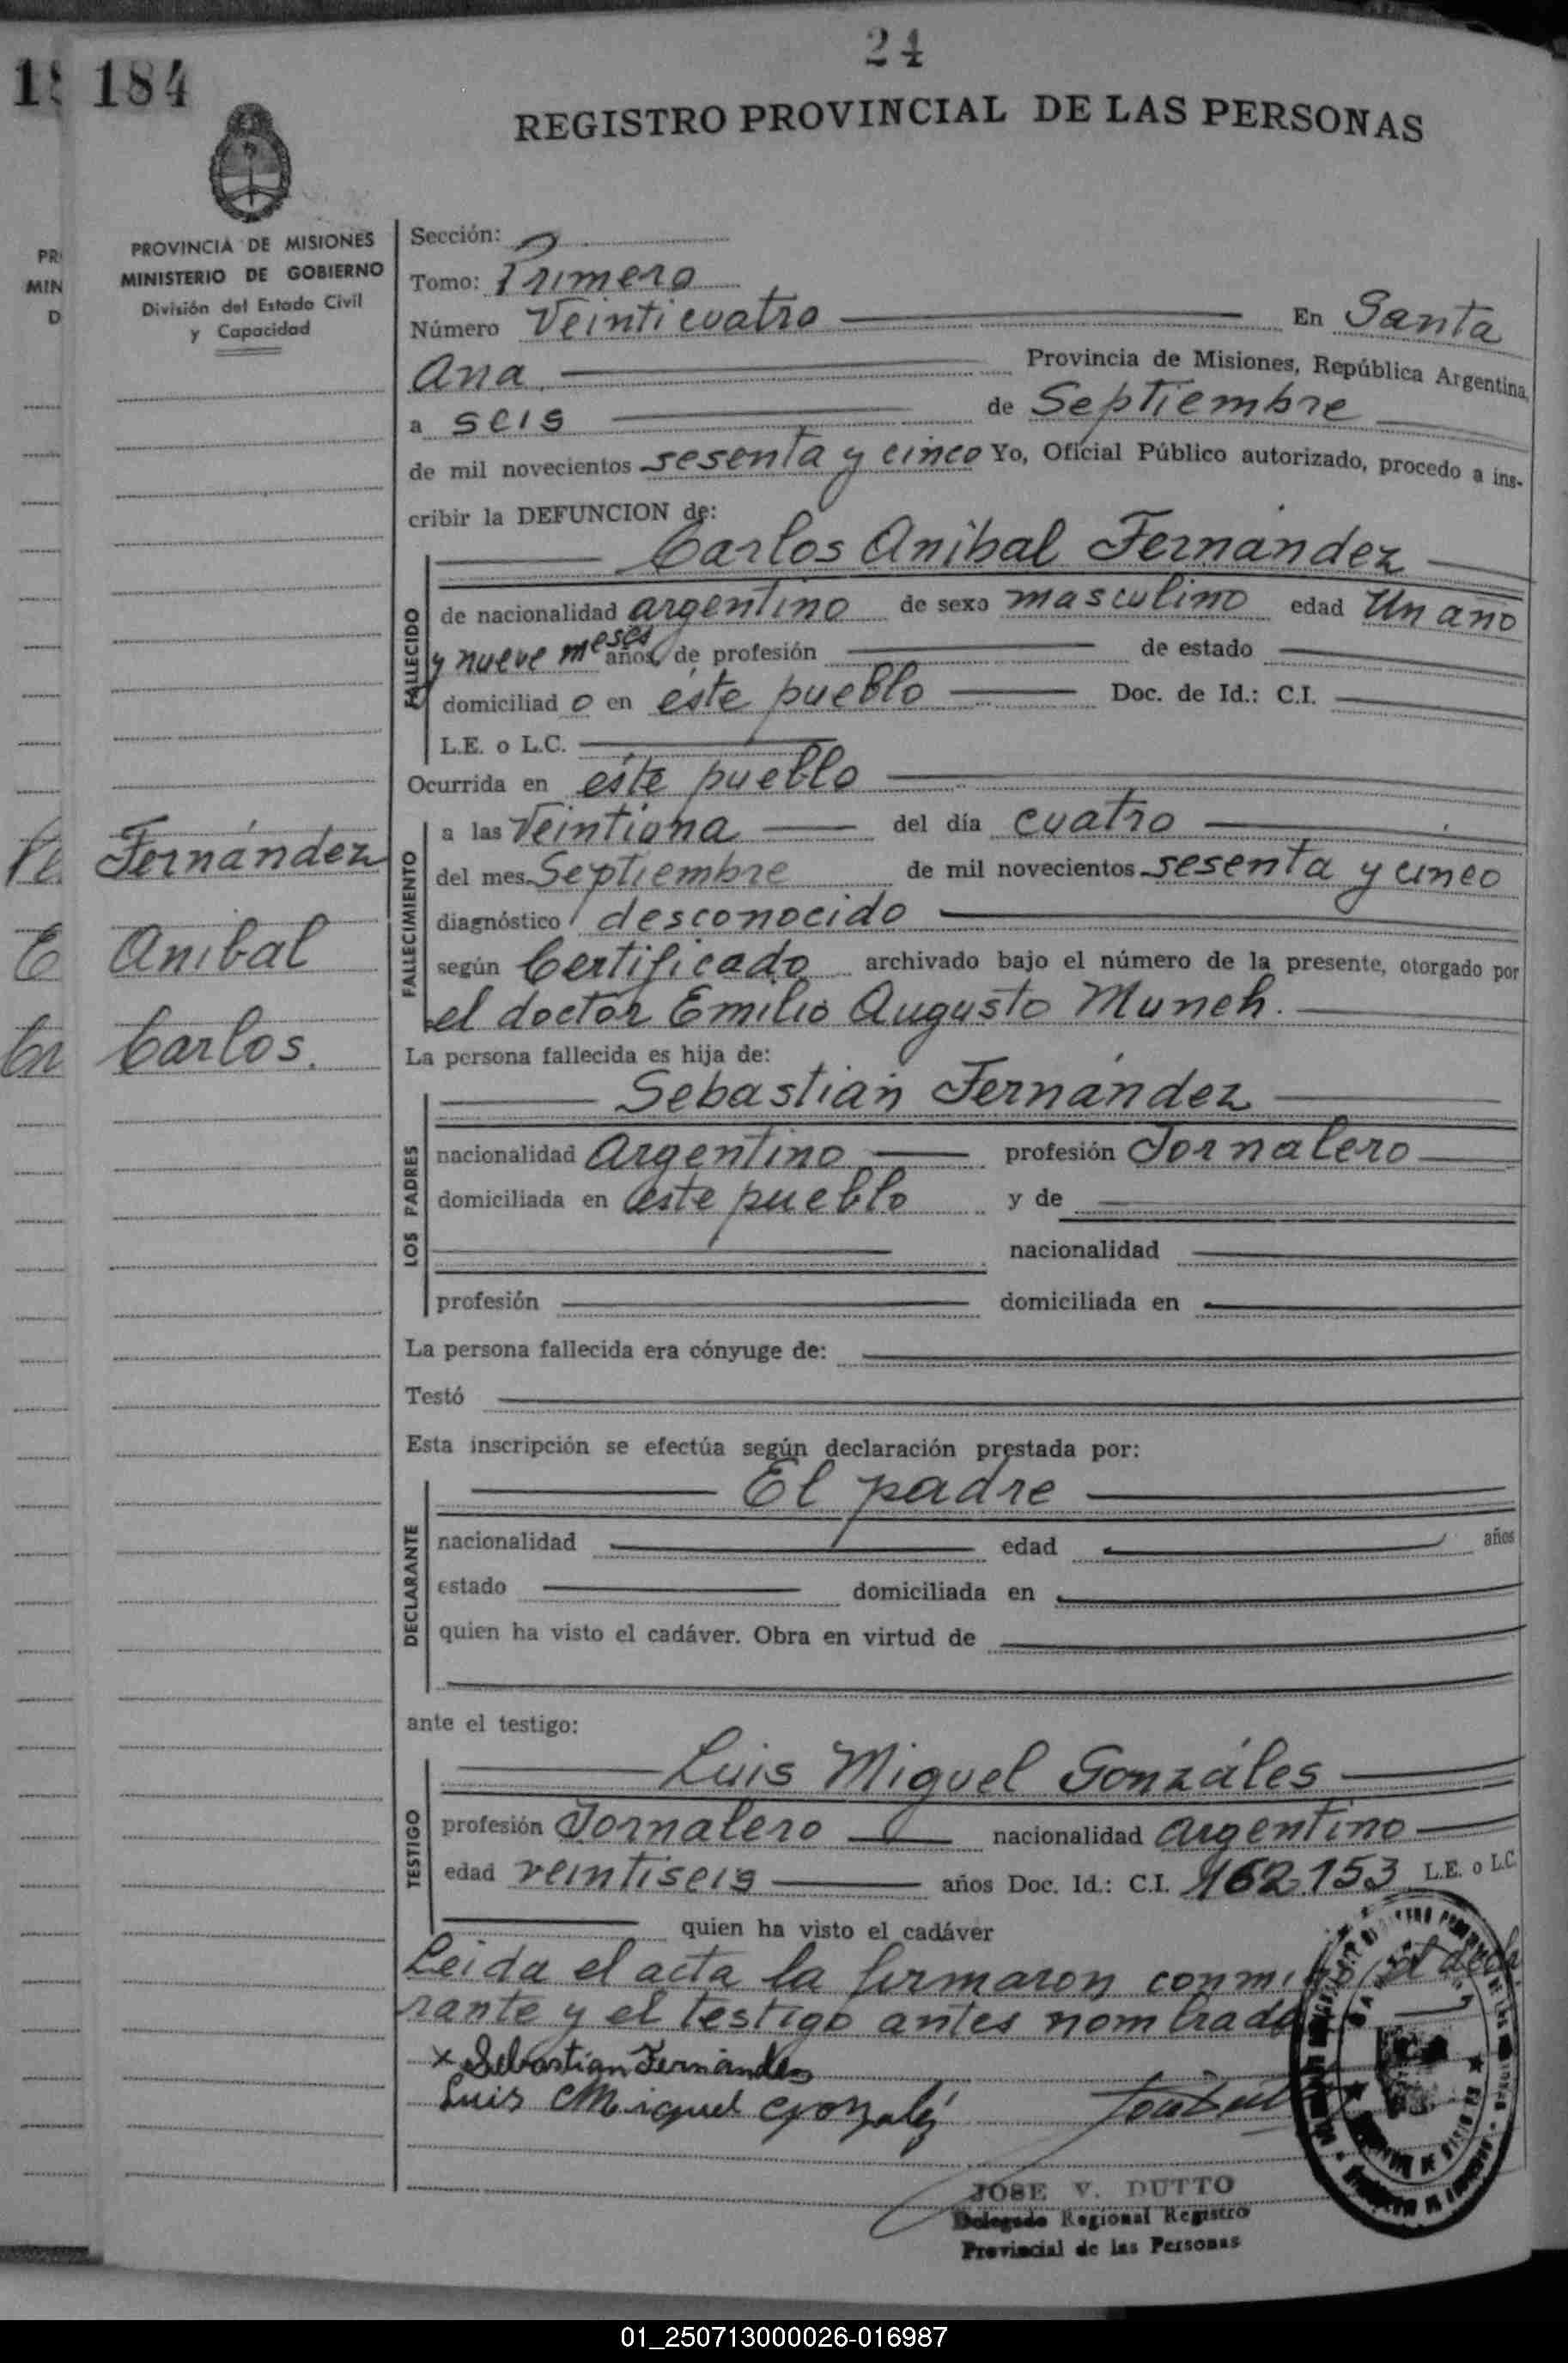 24
184
REGISTRO PROVINCIAL DE LAS PERSONAS
PROVINCIA DE MISIONES
MINISTERIO DE GOBIERNO
División del Estado Civil
y Capacidad
Fernández
Anibal
Carlos.
Sección:
Tomo: Primero
Número Veinticuatro En Santa
Ana. Provincia de Misiones, República Argentina,
a seis de Septiembre
de mil novecientos sesenta y cinco Yo, Oficial Público autorizado, procedo a ins-
cribir la DEFUNCION de:
Carlos Anibal Fernández
FALLECIDO
de nacionalidad argentino de sexo masculino edad Un año
y nueve meses años, de profesión de estado
domiciliad o en éste pueblo Doc. de Id.: C.I.
L.E. o L.C.
Ocurrida en éste pueblo
FALLECIMIENTO
a las Veintiuna del día cuatro
del mes Septiembre de mil novecientos sesenta y cinco
diagnóstico desconocido
según Certificado archivado bajo el número de la presente, otorgado por
el doctor Emilio Augusto Munch.
La persona fallecida es hija de:
Sebastián Fernández
LOS PADRES
nacionalidad Argentino profesión Jornalero
domiciliada en éste pueblo y de
nacionalidad
profesión domiciliada en
La persona fallecida era cónyuge de:
Testó
Esta inscripción se efectúa según declaración prestada por:
El padre
DECLARANTE
nacionalidad edad años
estado domiciliada en
quien ha visto el cadáver. Obra en virtud de
ante el testigo:
Luis Miguel Gonzáles
TESTIGO
profesión Jornalero nacionalidad argentino
edad veintiseis años Doc. Id.: C.I. 162.153 L.E. o L.C.
quien ha visto el cadáver
Leida el acta la firmaron conmigo el decla
rante y el testigo antes nombrado
x Sebastian Fernández
Luis Miguel Gonzalez
JOSE V. DUTTO
Delegado Regional Registro
Provincial de las Personas
01_250713000026-016987